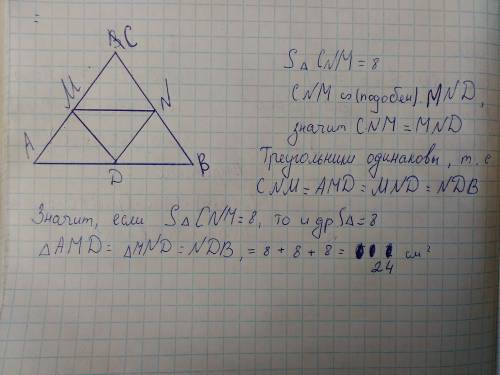 C
M
N
A
D
B
S△CNM = 8
CNM ∞ (подобен) MND,
значит CNM = MND
Треугольники одинаковы, т. е
CNM = AMD = MND = NDB
Значит, если S△CNM = 8, то и др S△ = 8
△AMD = △MND = NDB, = 8 + 8 + 8 = 24 см²